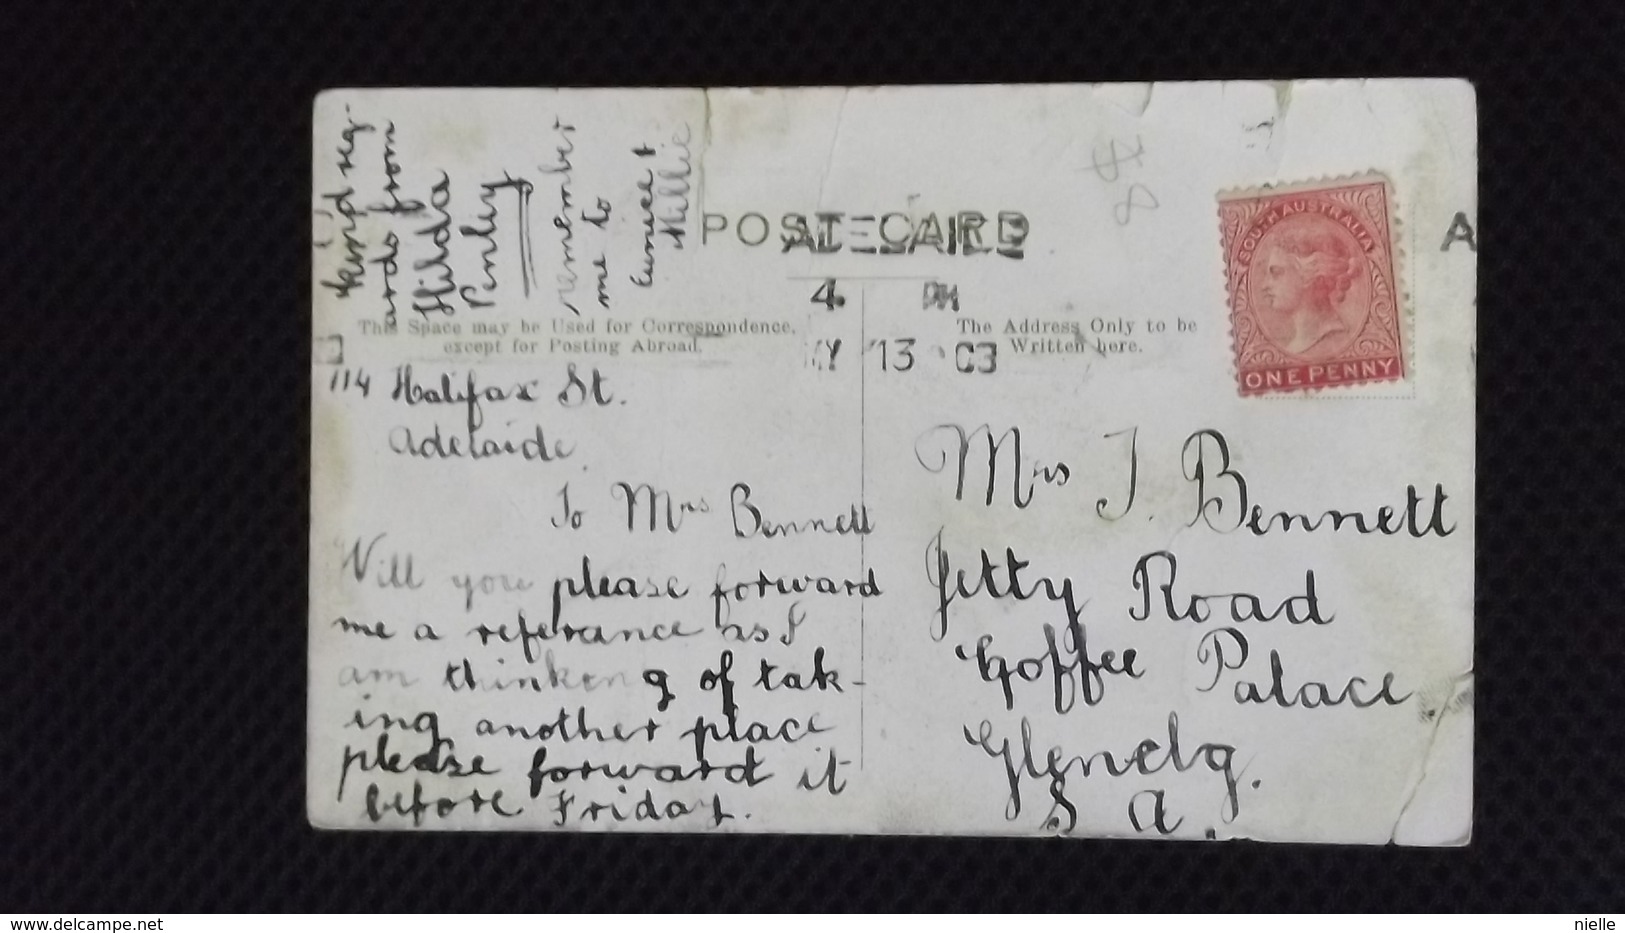 Kind reg-
ards from
Hilda
Penley
remember
me to
Eunice &
Nellie
POSTCARD
ADELAIDE
4 PM
MY 13 03
SOUTH AUSTRALIA
ONE PENNY
This Space may be Used for Correspondence,
except for Posting Abroad.
The Address Only to be
Written here.
114 Halifax St.
Adelaide.
To Mrs Bennett
Will you please forward
me a referance as I
am thinking of tak-
ing another place
please forward it
before Friday.
Mrs J. Bennett
Jetty Road
Coffee Palace
Glenelg.
S A.
delcampe.net
nielle